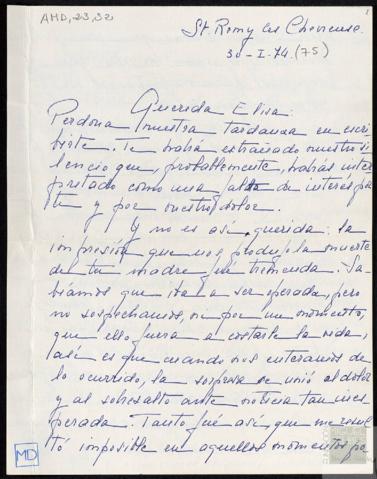 AMD, 23, 32
St. Remy les Chevreuse.
30-I-74 (75)
Querida Elisa:
Perdona nuestra tardanza en escri-
birte. Te habrá extrañado nuestro si-
lencio que, probablemente, habrás inter-
pretado como una falta de interés por
ti y por vuestro dolor.
Y no es así, querida: la
impresión que nos produjo la muerte
de tu madre fué tremenda. Sa-
bíamos que iba a ser operada, pero
no sospechamos, ni por un momento,
que ello fuera a costarle la vida,
así es que cuando nos enteramos de
lo ocurrido, la sorpresa se unió al dolor
y al sobresalto ante noticia tan ines-
perada. Tanto fué así, que me resul-
tó imposible en aquellos momentos po
MD